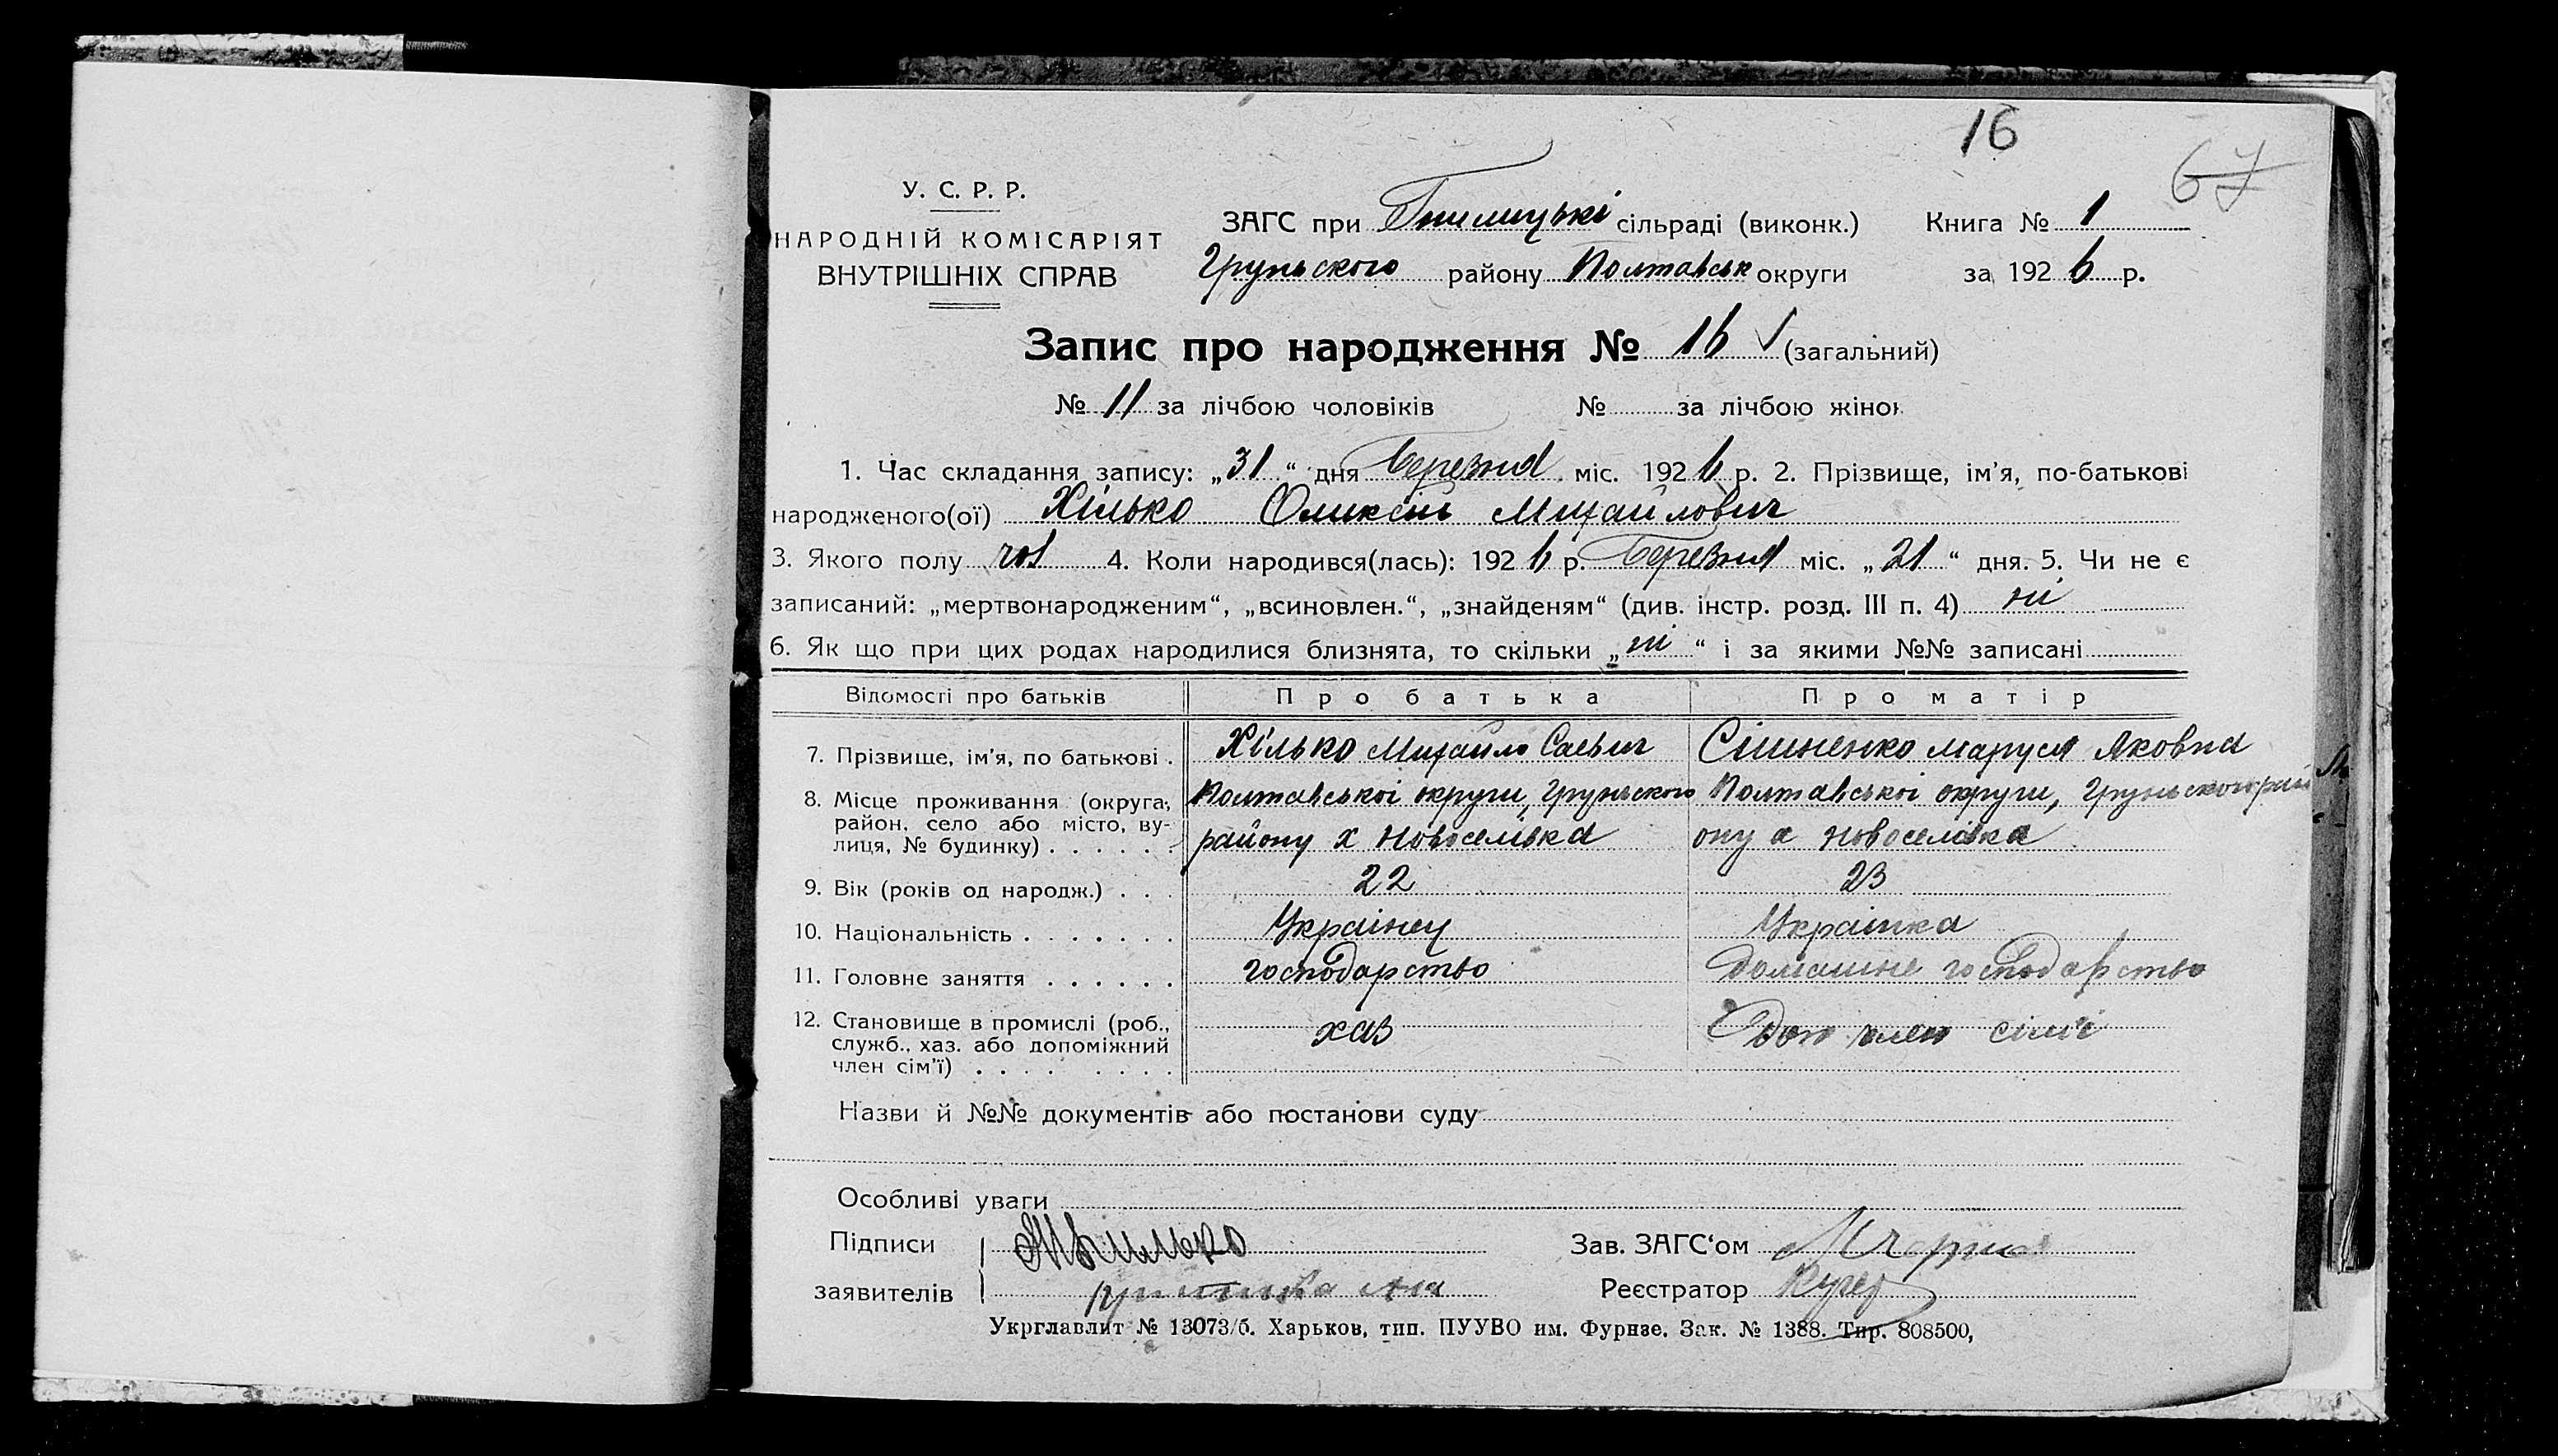 16
67
У. С. Р. Р.
НАРОДНІЙ КОМІСАРІЯТ
ВНУТРІШНІХ СПРАВ
ЗАГС при Гнилицькі сільраді (виконк.) Книга № 1
Груньского району Полтавськ округи за 1926 р.
Запис про народження № 16 (загальний)
№ 11 за лічбою чоловіків № за лічбою жінок
1. Час складання запису: „31“ дня березня міс. 1926 р. 2. Прізвище, ім'я, по-батькові
народженого(ої) Хілько Оликсій Михайлович
3. Якого полу чол 4. Коли народився(лась): 1926 р. березня міс. „21“ дня. 5. Чи не є
записаний: „мертвонародженим“, „всиновлен.“, „знайденям“ (див. інстр. розд. III п. 4) ні
6. Як що при цих родах народилися близнята, то скільки „ні“ і за якими №№ записані
Відомості про батьків Про батька Про матір
7. Прізвище, ім'я, по батькові . Хілько Михайло Савич Маруся Яковна
8. Місце проживання (округа, район, село або місто, вулиця, № будинку) . . . . . . Полтавськоі округи, Груньского Полтавськоі округи, Груньского рай
району х Новоселівка ону х Новоселівка
9. Вік (років од народж.) . . . 22 23
10. Національність . . . . . . . Украінец Украінка
11. Головне заняття . . . . . . господарство домашне господарство
12. Становище в промислі (роб., служб., хаз. або допоміжний член сім'ї) . . . . . . . . хаз доп член сімі
Назви й №№ документів або постанови суду
Особливі уваги
Підписи
Зав. ЗАГС'ом
заявителів
Реєстратор
Укрглавлит № 13073/б. Харьков, тип. ПУУВО им. Фрунзе. Зак. № 1388. Тир. 808500,